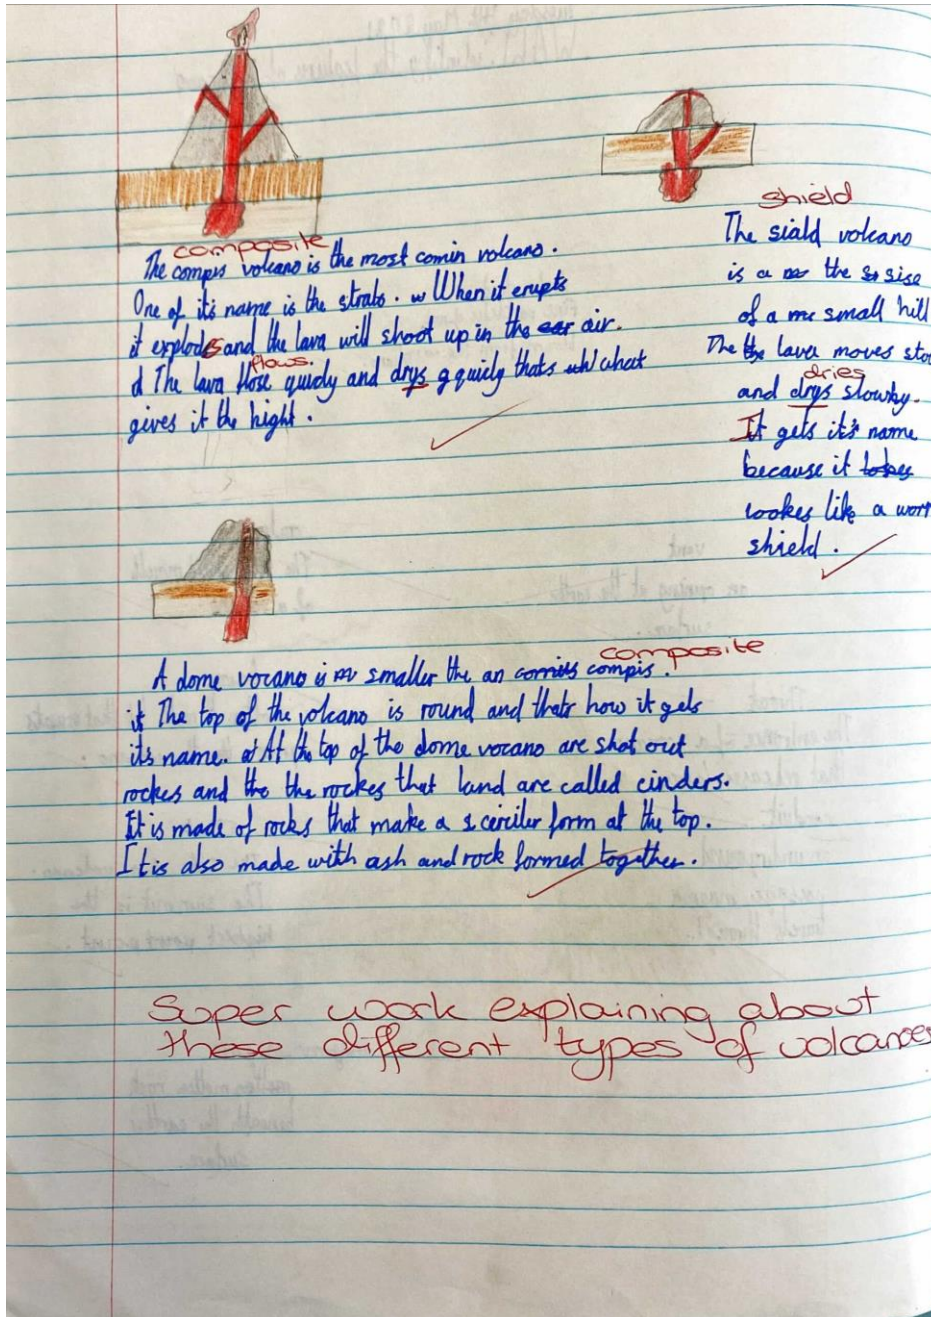 composite
The compis volcano is the most comin volcano.
One of it's name is the strato. w When it erupts
it explodes and the lava will shoot up in the ear air.
flows.
d The lava flose quicly and drys q quicly thats wh what
gives it the hight.
shield
The siald volcano
is a the s sise
of a mc small hill
The the lava moves
dries
and drys slowly.
It gets it's name
because it lookes
lookes like a
shield.
composite
A dome vocano is m smaller the an comits compis.
it The top of the volcano is round and thats how it gets
its name. at At the top of the dome vocano are shot out
rockes and the the rockes that land are called cinders.
It is made of rocks that make a s cerciler form at the top.
It is also made with ash and rock formed together.
Super work explaining about
these different types of volcanoes